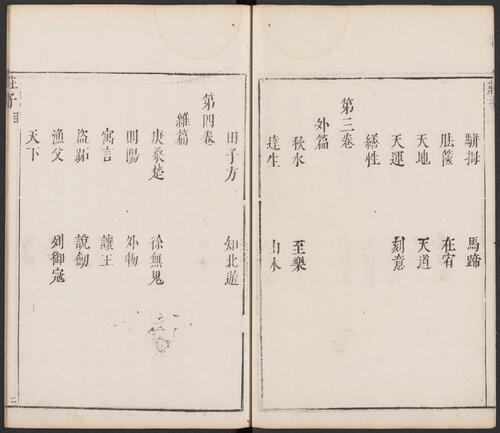 駢拇 馬蹄
胠篋 在宥
天地 天道
天運 刻意
繕性
第三卷
外篇
秋水 至樂
達生 山木
田子方 知北遊
第四卷
雜篇
庚桑楚 徐無鬼
則陽 外物
寓言 讓王
盜跖 說劍
漁父 列御寇
天下
莊子目
二